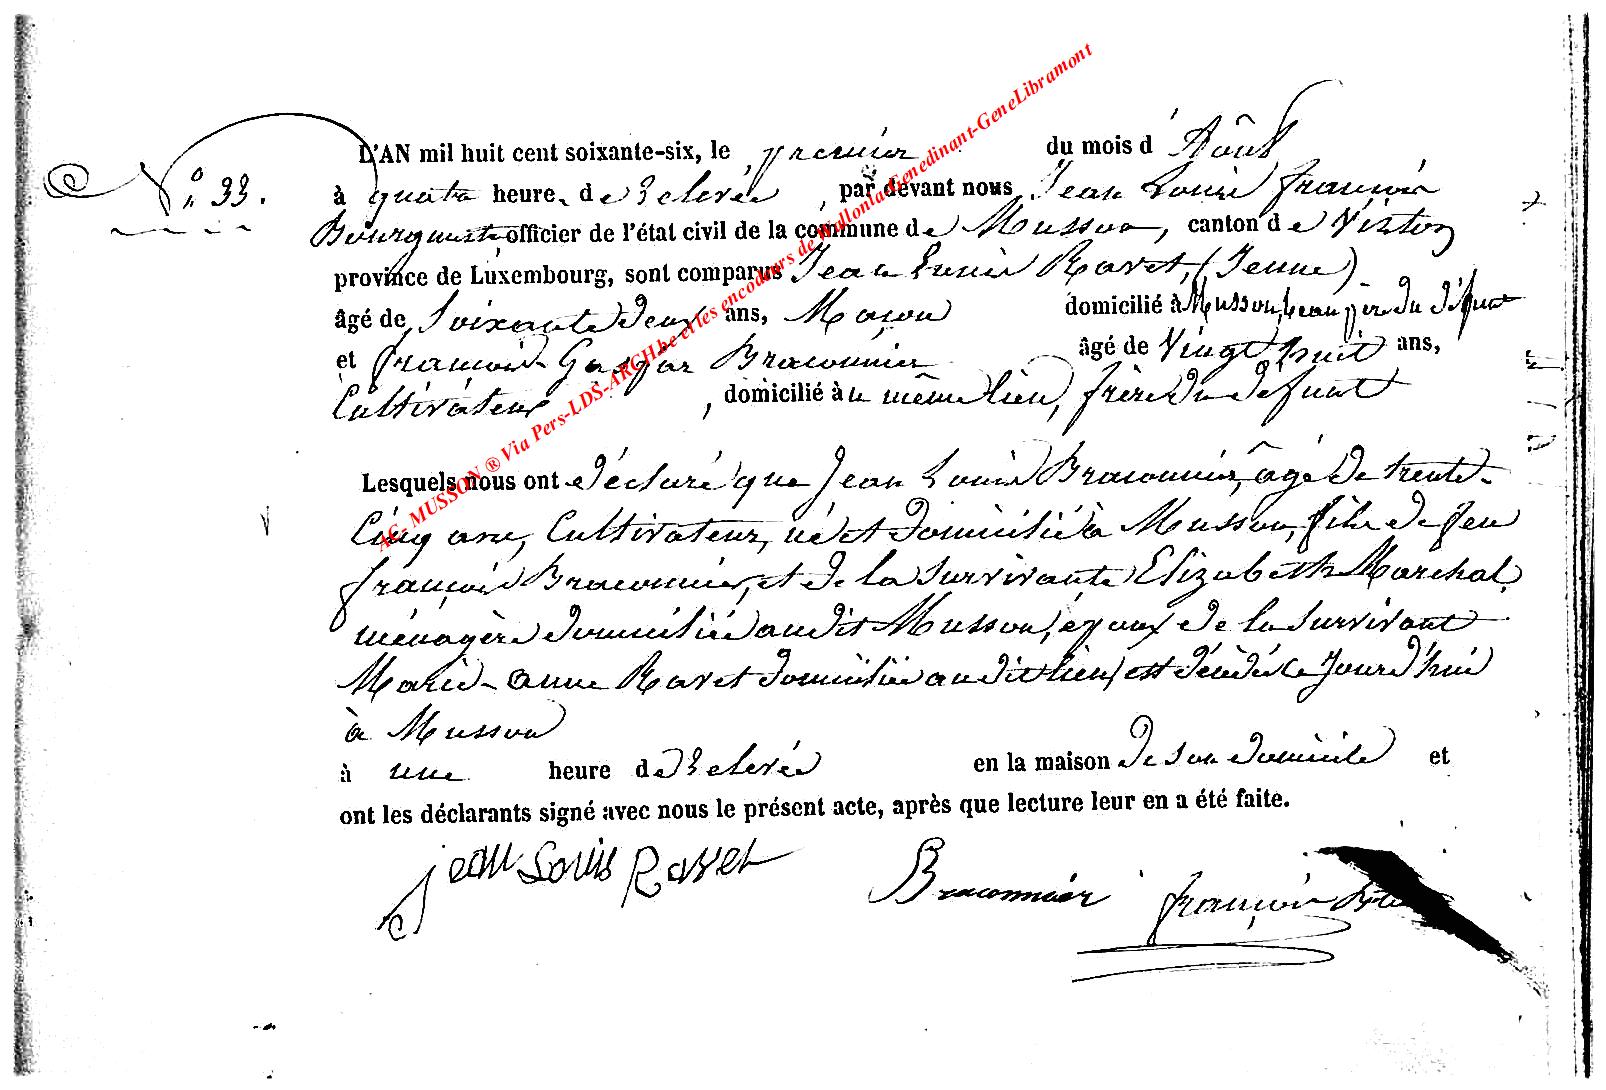 N.° 33.
L'AN mil huit cent soixante-six, le premier du mois d'Août
à quatre heure. de relevée, par devant nous Jean Louis François
officier de l'état civil de la commune de Musson, canton de Virton
province de Luxembourg, sont comparus Jean Louis Ravet, (Jeune)
âgé de Soixante deux ans, Maçon domicilié à Musson, beau père du défunt
et François Gaspar Braconnier âgé de Vingt huit ans,
Cultivateur, domicilié à même lieu, frère du défunt
Lesquels nous ont déclaré que Jean Louis Braconnier, âgé de trente-
Cinq ans, Cultivateur, né et domicilié à Musson, fils de feu
François Braconnier, et de la Survivante Elizabeth Marchal,
ménagère domiciliée audit Musson, époux de la Survivant
Marie-anne Ravet domiciliée audit lieu, est décédé ce Jourd'hui
à Musson
à une heure de relevée en la maison de son domicile et
ont les déclarants signé avec nous le présent acte, après que lecture leur en a été faite.
Jean Louis Ravet Braconnier françois
AC- MUSSON ® Via Pers-LDS-ARCH.be et les encodeurs de Wallonia-Genedinant-GeneLibramont